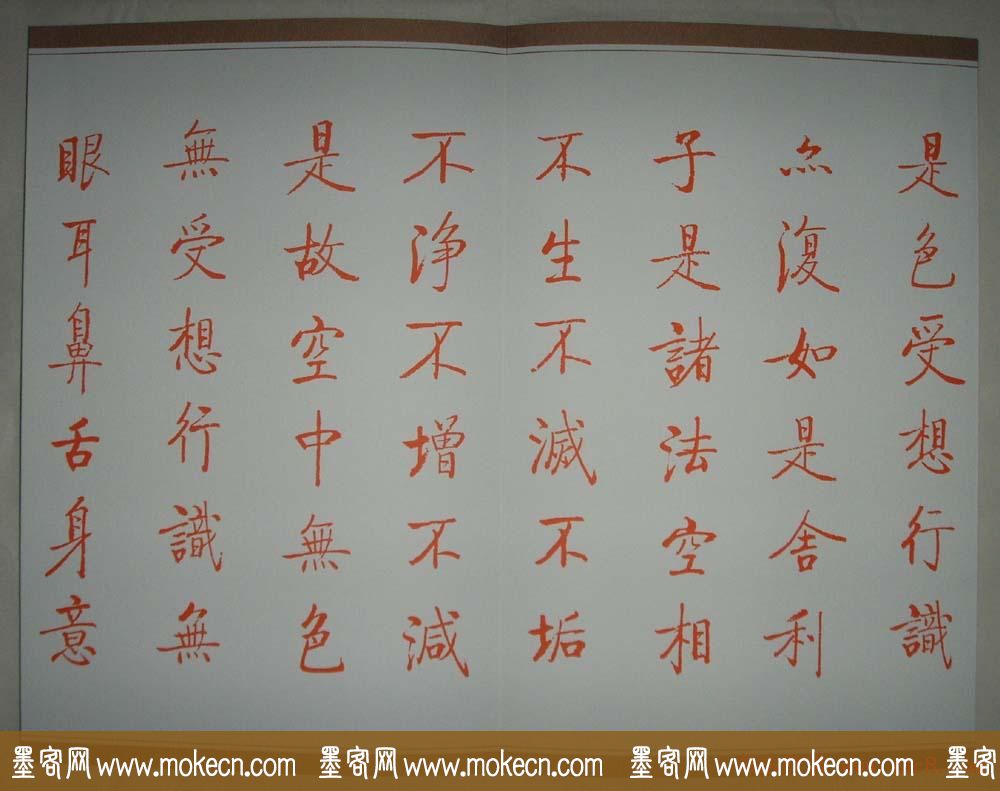 是色受想行識
亦復如是舍利
子是諸法空相
不生不滅不垢
不浄不增不減
是故空中無色
無受想行識無
眼耳鼻舌身意
墨客网 www.mokecn.com 墨客网 www.mokecn.com 墨客网 www.mokecn.com 墨客网